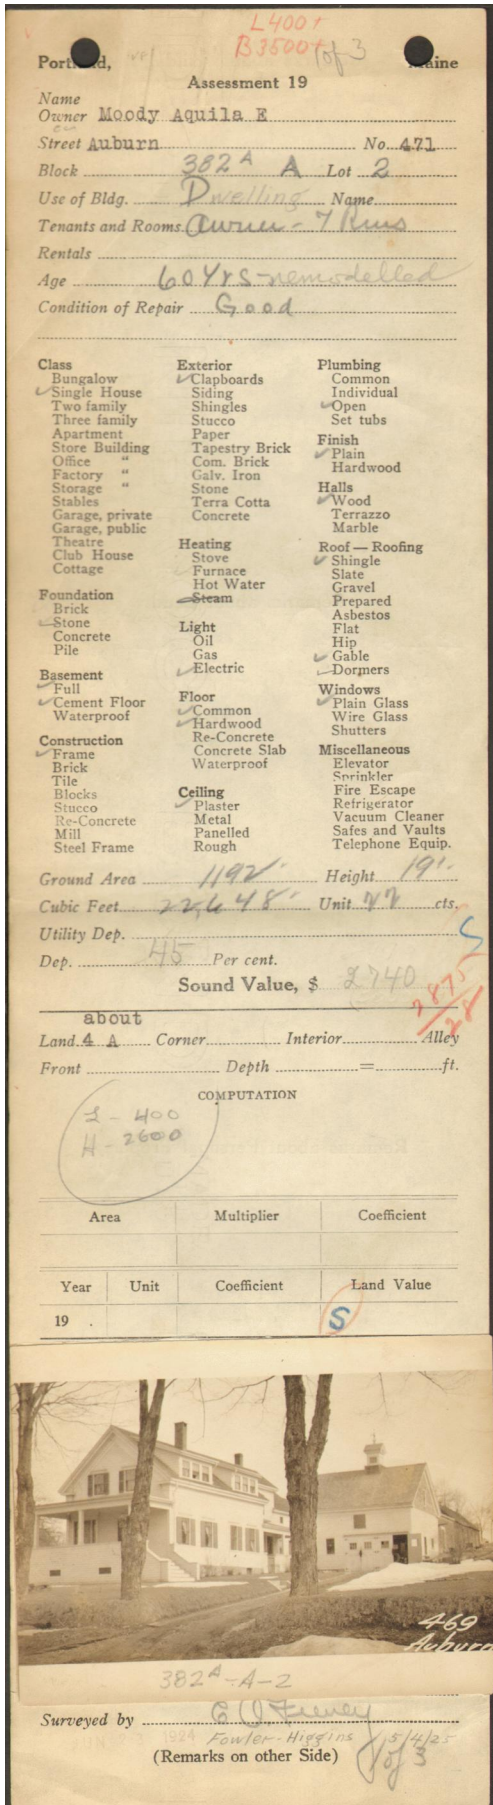 L400+
B3500+
1 of 3
Portland, Maine
Assessment 19
Name
Owner Moody Aquila E
Street Auburn No. 471
Block 382A A Lot 2
Use of Bldg. Dwelling Name
Tenants and Rooms Owner - 7 Rms
Rentals
Age 60 Yrs - remodelled
Condition of Repair Good
Class
Bungalow
Single House
Two family
Three family
Apartment
Store Building
Office "
Factory "
Storage "
Stables
Garage, private
Garage, public
Theatre
Club House
Cottage
Foundation
Brick
Stone
Concrete
Pile
Basement
Full
Cement Floor
Waterproof
Construction
Frame
Brick
Tile
Blocks
Stucco
Re-Concrete
Mill
Steel Frame
Exterior
Clapboards
Siding
Shingles
Stucco
Paper
Tapestry Brick
Com. Brick
Galv. Iron
Stone
Terra Cotta
Concrete
Heating
Stove
Furnace
Hot Water
Steam
Light
Oil
Gas
Electric
Floor
Common
Hardwood
Re-Concrete
Concrete Slab
Waterproof
Ceiling
Plaster
Metal
Panelled
Rough
Plumbing
Common
Individual
Open
Set tubs
Finish
Plain
Hardwood
Halls
Wood
Terrazzo
Marble
Roof — Roofing
Shingle
Slate
Gravel
Prepared
Asbestos
Flat
Hip
Gable
Dormers
Windows
Plain Glass
Wire Glass
Shutters
Miscellaneous
Elevator
Sprinkler
Fire Escape
Refrigerator
Vacuum Cleaner
Safes and Vaults
Telephone Equip.
Ground Area 1192 Height 19'
Cubic Feet 22,648 Unit 22 cts.
Utility Dep.
Dep. 45 Per cent.
Sound Value, $ 2740
2875/28
about
Land 4 A Corner Interior Alley
Front Depth = ft.
COMPUTATION
L - 400
H - 2600
Area Multiplier Coefficient
Year Unit Coefficient Land Value
19 .
S
469
Auburn
382A-A-2
Surveyed by
1924 Fowler-Higgins 5/4/25
(Remarks on other Side) 1 of 3